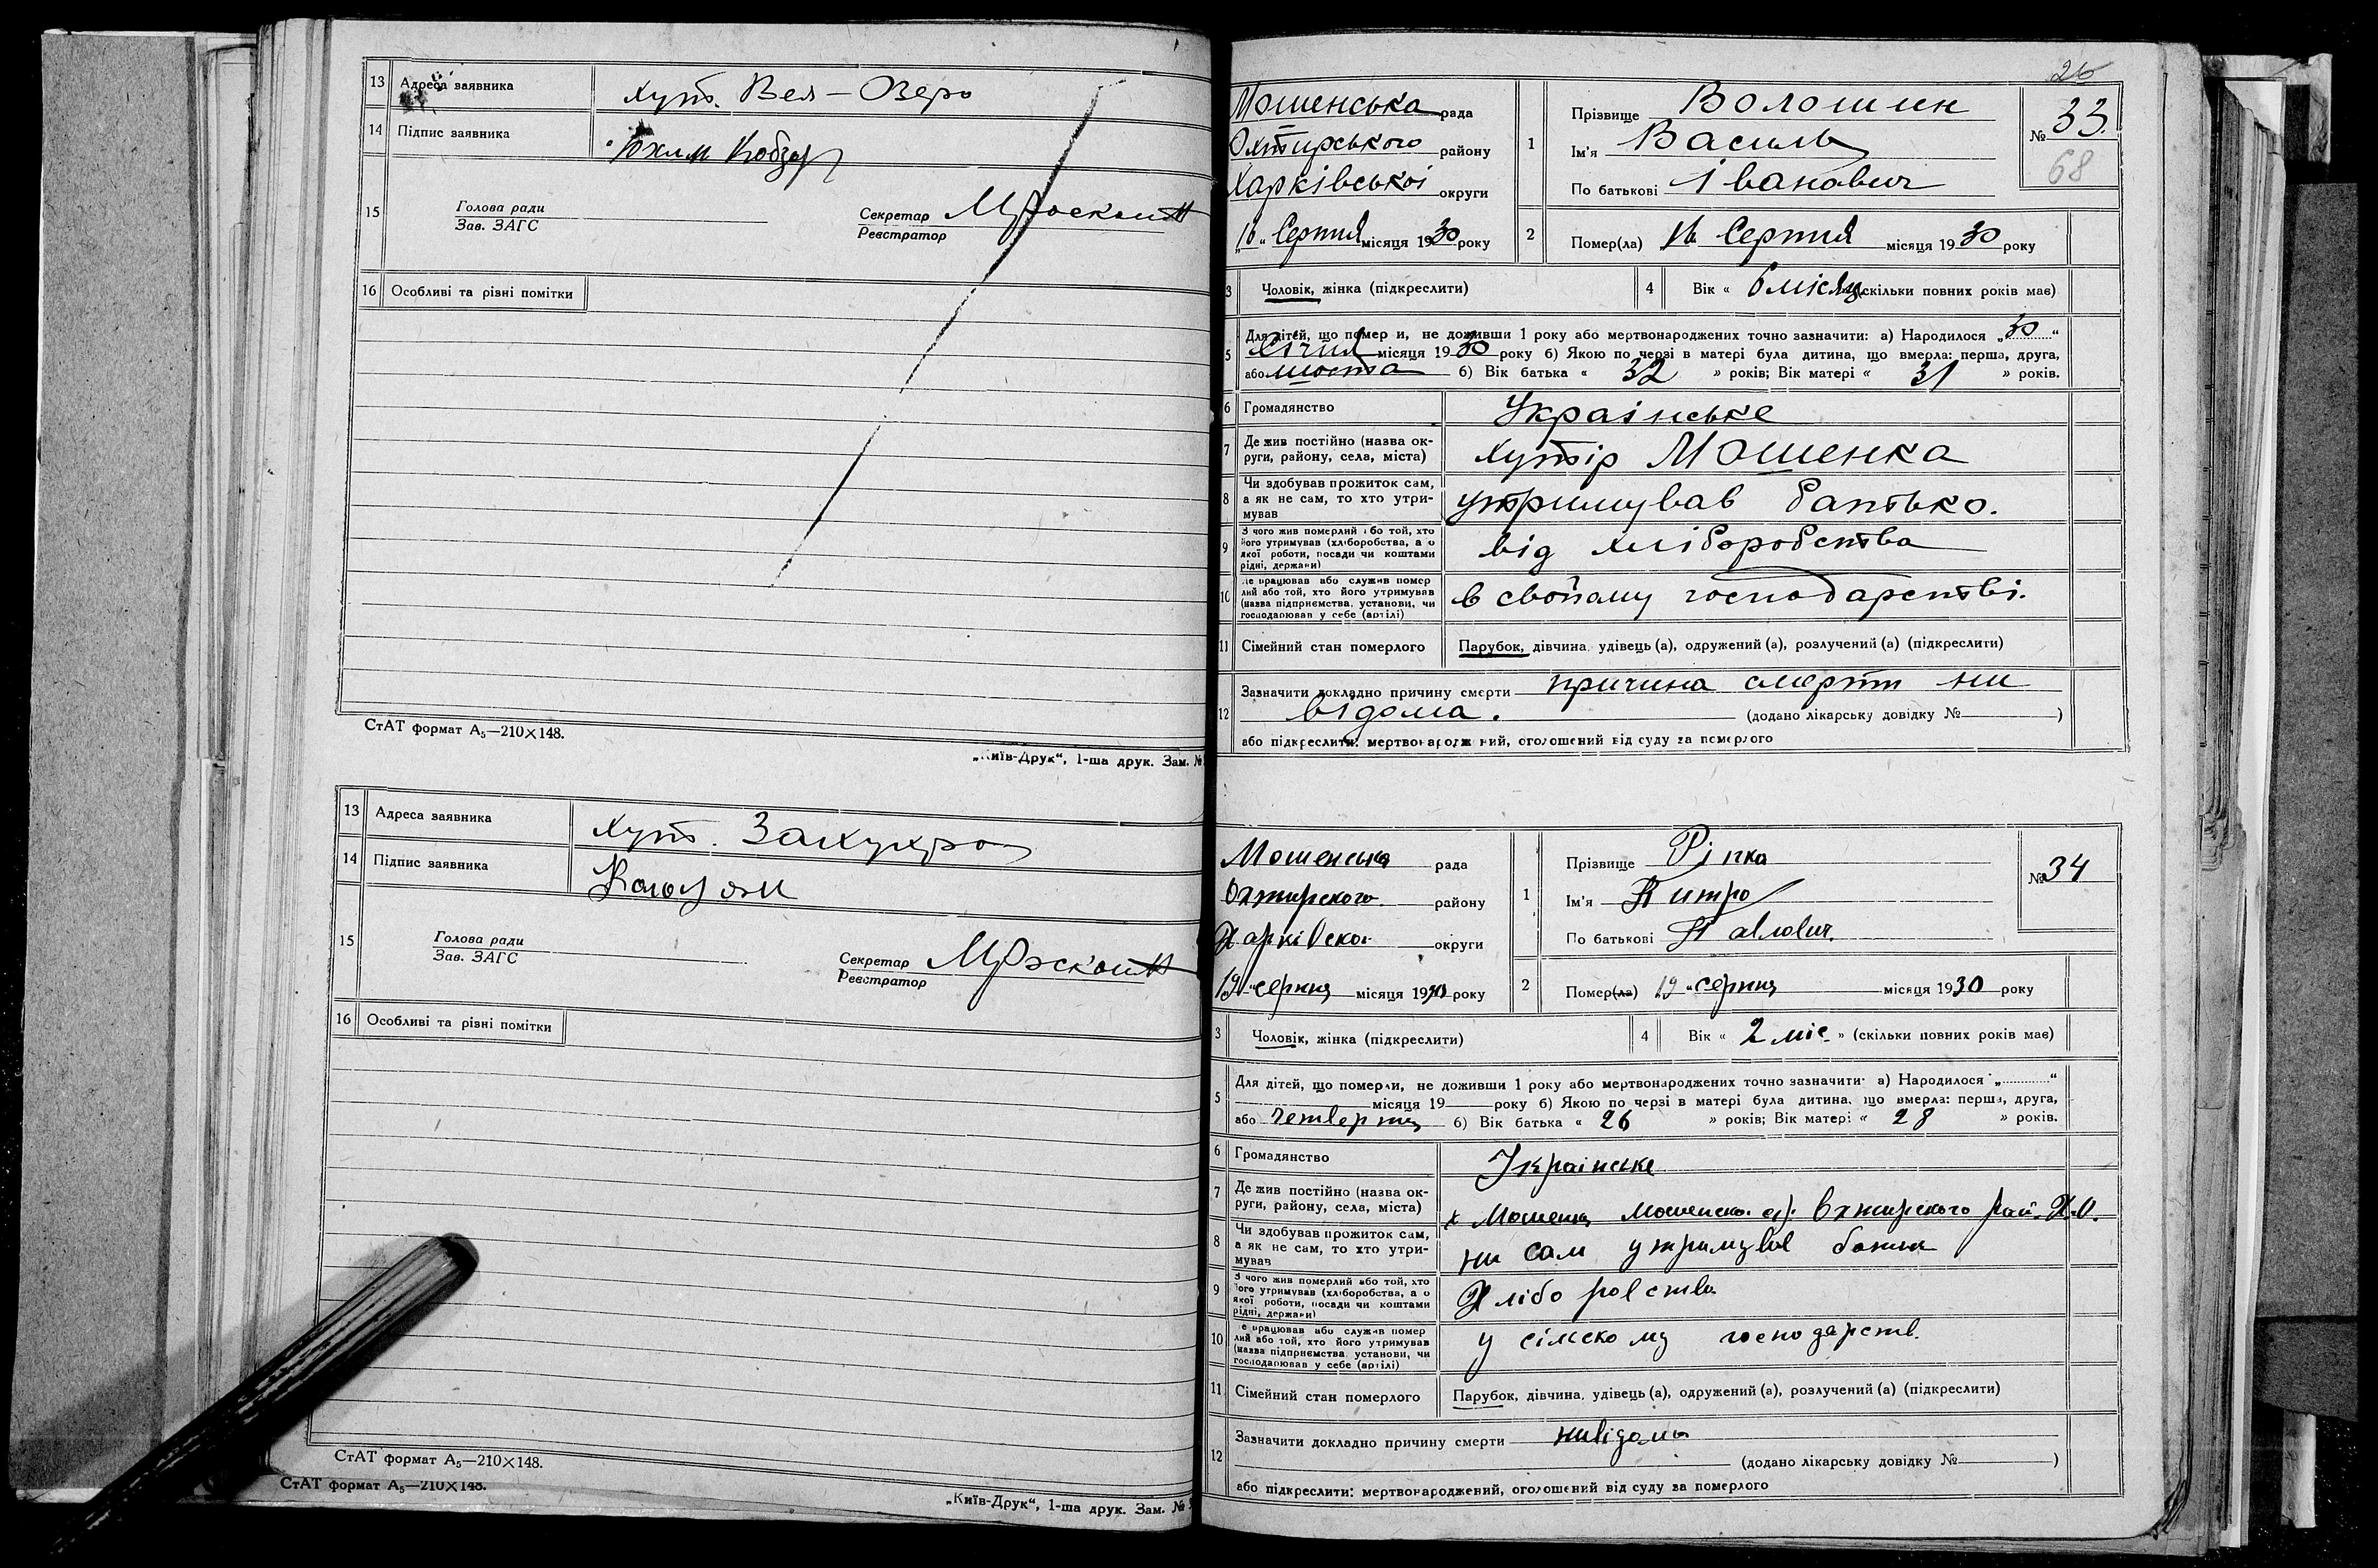 13 Адреса заявника хут. Вел-Озеро
14 Підпис заявника Юхим Кобзар
15 Голова ради
Зав. ЗАГС
Секретар
Реєстратор
16 Особливі та різні помітки
СтАТ формат А₅—210×148.
„Київ-Друк“, 1-ша друк. Зам. №
13 Адреса заявника хут.
14 Підпис заявника
15 Голова ради
Зав. ЗАГС
Секретар
Реєстратор
16 Особливі та різні помітки
СтАТ формат А₅—210×148.
СтАТ формат А₅—210×148.
„Київ-Друк“, 1-ша друк. Зам. №
26
Мошенська рада
Охтирського району
Харківської округи
„16“ Серпня місяця 1930 року
1 Прізвище Волошин
Ім'я Василь
По батькові Іванович
№ 33.
68
2 Помер(ла) 16 Серпня місяця 1930 року
3 Чоловік, жінка (підкреслити)
4 Вік « 6 місяц (скільки повних років має)
5 Для дітей, що померли, не доживши 1 року або мертвонароджених точно зазначити: а) Народилося „30“
Січня місяця 1930 року б) Якою по черзі в матері була дитина, що вмерла: перша, друга,
або шоста б) Вік батька « 32 » років; Вік матері « 31 » років.
6 Громадянство Украінське
7 Де жив постійно (назва ок-
руги, району, села, міста) хутір Мошенка
8 Чи здобував прожиток сам,
а як не сам, то хто утри-
мував утримував батько.
9 З чого жив померлий або той, хто
його утримував (хліборобства, а о
якої роботи, посади чи коштами
рідні, держави) від хліборобства
10 Де працював або служив помер
лий або той, хто його утримував
(назва підприємства, установи, чи
господарював у себе (артілі) в свойому господарстві.
11 Сімейний стан померлого Парубок, дівчина, удівець (а), одружений (а), розлучений (а) (підкреслити)
12 Зазначити докладно причину смерти причина смерти ни
відома. (додано лікарську довідку № )
або підкреслити: мертвонароджений, оголошений від суду за померлого
Мошенська рада
Охтирского району
Харківскоі округи
19 „серпня місяця 1930 року
1 Прізвище Ріпка
Ім'я Питро
По батькові Павлович.
№ 34
2 Помер(ла) 19 „серпня місяця 1930 року
3 Чоловік, жінка (підкреслити)
4 Вік « 2 міс. » (скільки повних років має)
5 Для дітей, що померли, не доживши 1 року або мертвонароджених точно зазначити: а) Народилося „ “
місяця 19 року б) Якою по черзі в матері була дитина, що вмерла: перша, друга,
або четверта б) Вік батька « 26 » років; Вік матері « 28 » років.
6 Громадянство Украінське
7 Де жив постійно (назва ок-
руги, району, села, міста) х Мошенка Мошенскоі с/р. Охтирского рай. Х.О.
8 Чи здобував прожиток сам,
а як не сам, то хто утри-
мував ни сам утримував батько
9 З чого жив померлий або той, хто
його утримував (хліборобства, а о
якої роботи, посади чи коштами
рідні, держави) Хліборобства
10 Де працював або служив помер
лий або той, хто його утримував
(назва підприємства, установи, чи
господарював у себе (артілі) у сільскому господарств.
11 Сімейний стан померлого Парубок, дівчина, удівець (а), одружений (а), розлучений (а) (підкреслити)
12 Зазначити докладно причину смерти нивідома
(додано лікарську довідку № )
або підкреслити: мертвонароджений, оголошений від суду за померлого